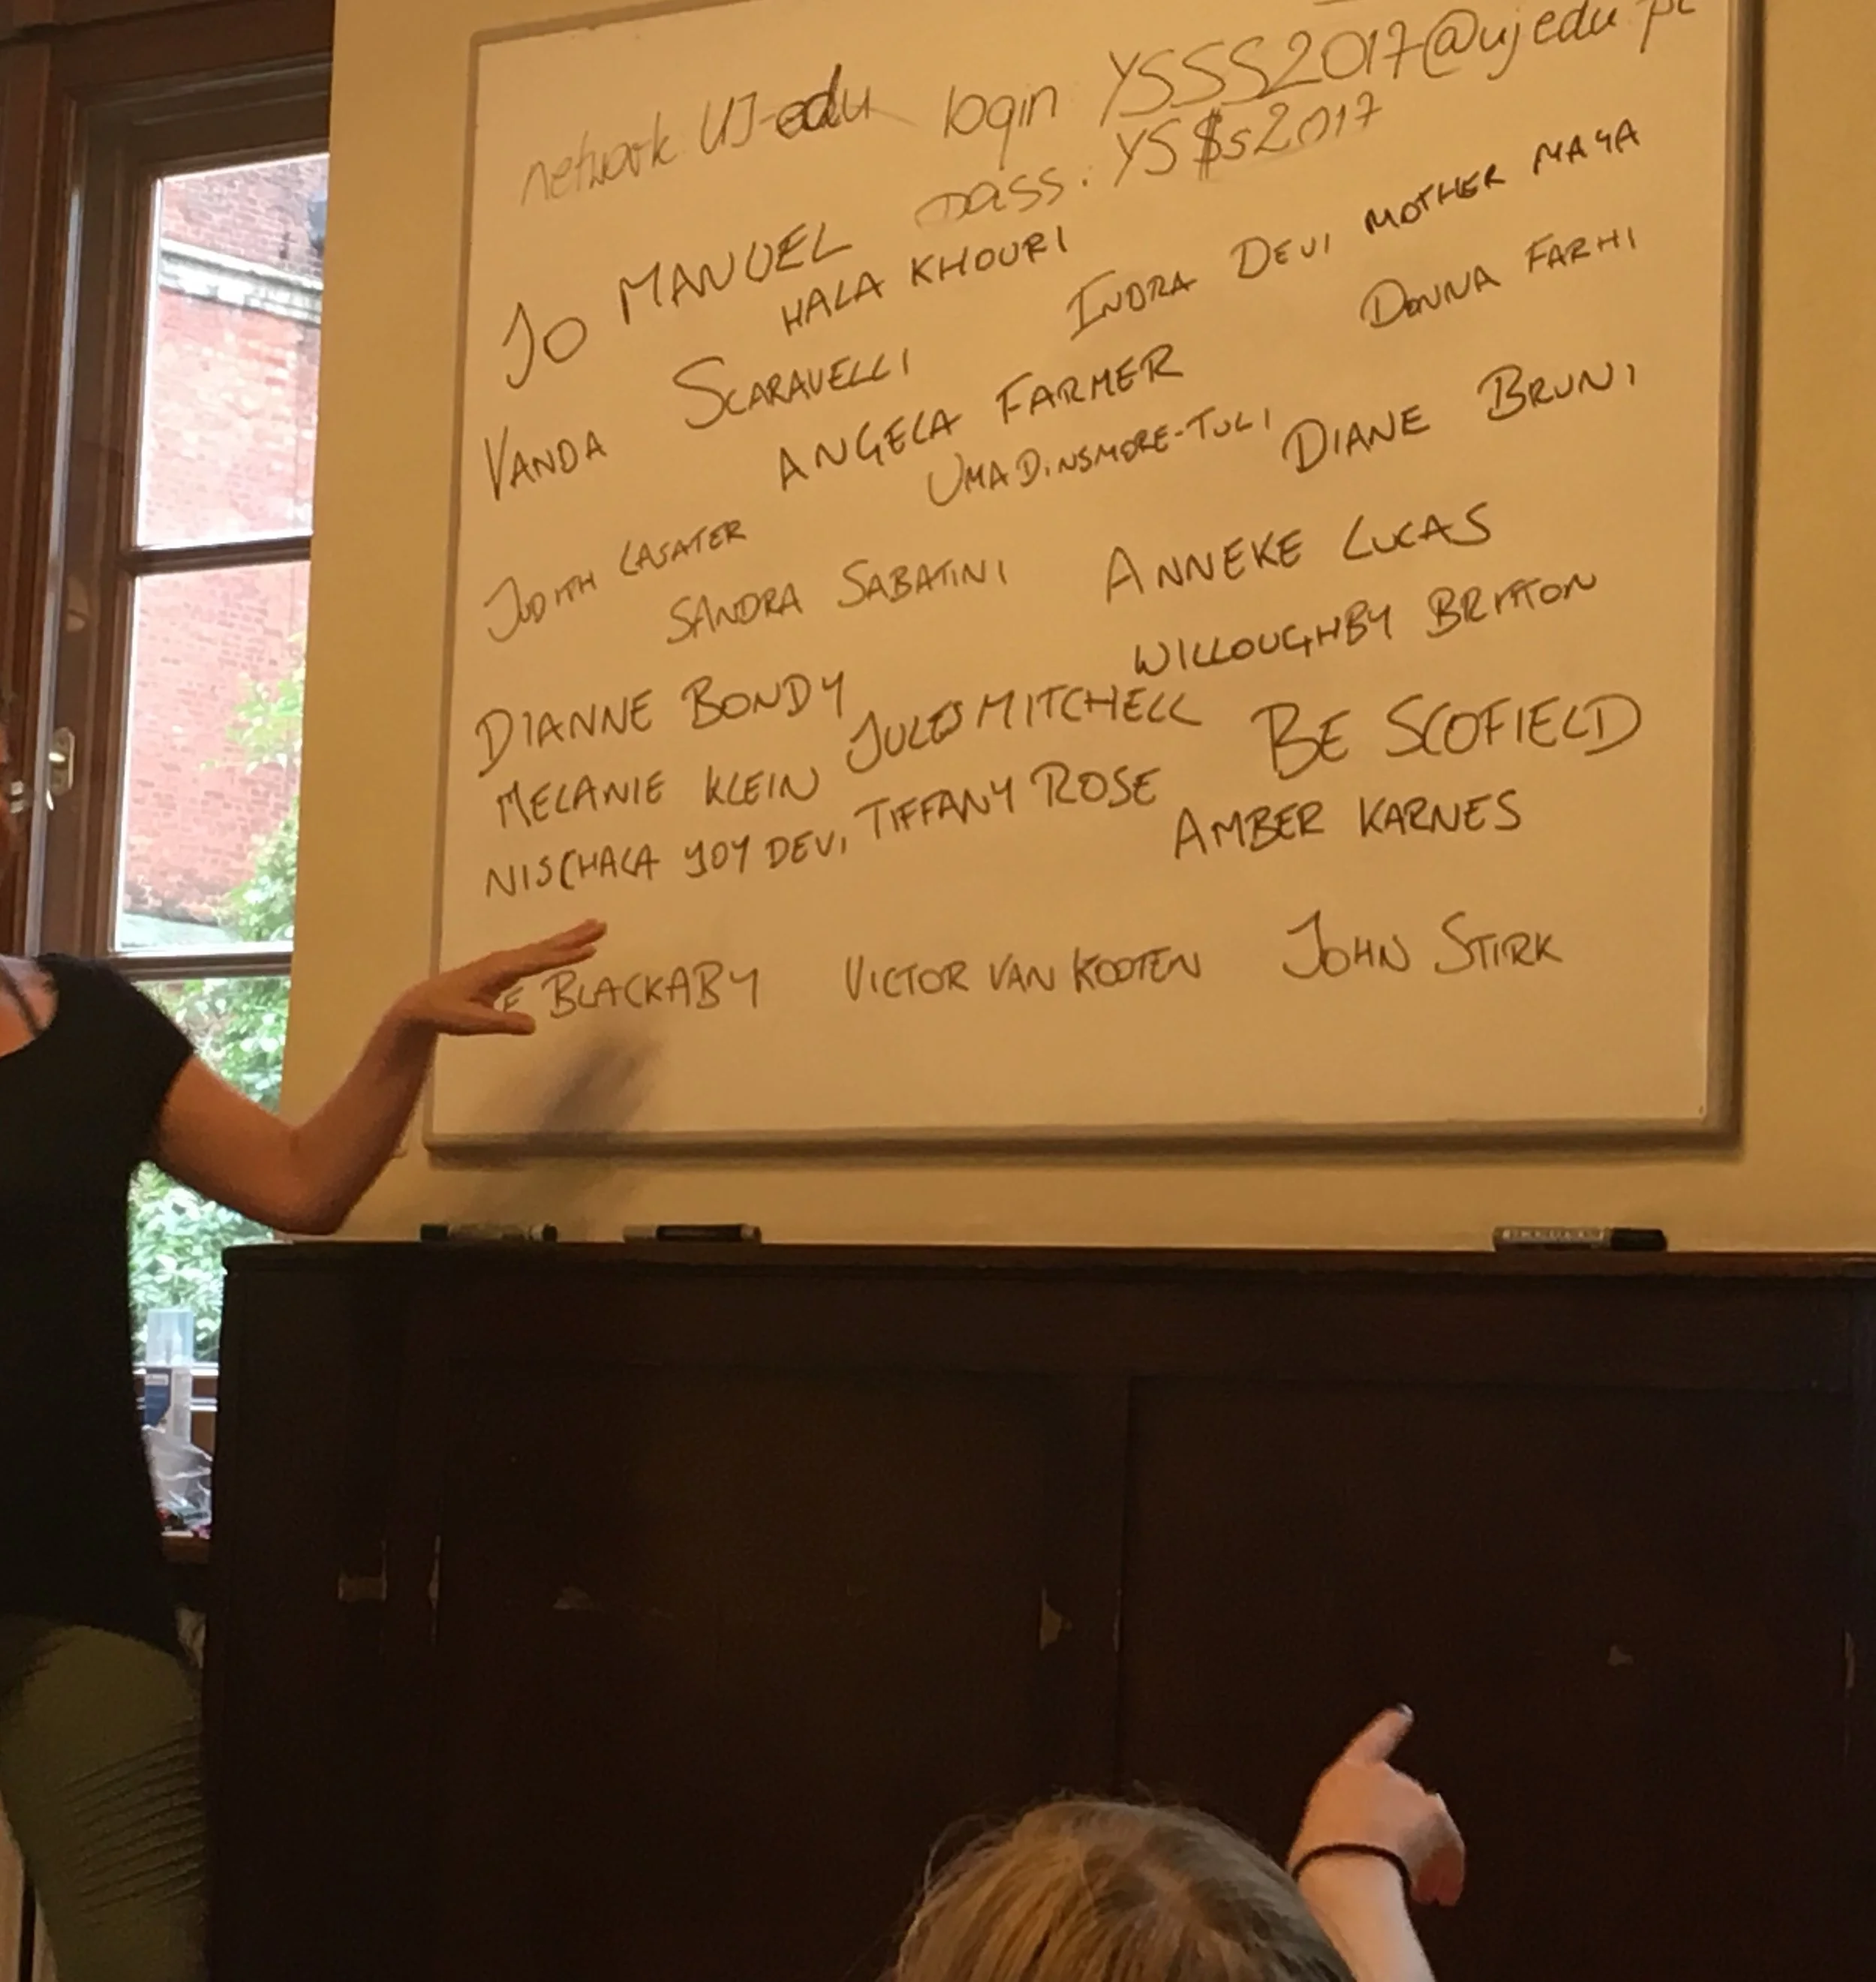 network UJ-edu login YSSS2017@uj.edu.pl
pass: YS$s2017
JO MANUEL
HALA KHOURI
INDRA DEVI MOTHER MAYA
VANDA SCARAVELLI
DONNA FARHI
ANGELA FARMER
UMA DINSMORE-TULI
DIANE BRUNI
JUDITH LASATER
SANDRA SABATINI
ANNEKE LUCAS
WILLOUGHBY BRITTON
DIANNE BONDY
JULES MITCHELL
BE SCOFIELD
MELANIE KLEIN
TIFFANY ROSE
AMBER KARNES
NISCHALA JOY DEVI
BLACKABY VICTOR VAN KOOTEN JOHN STIRK